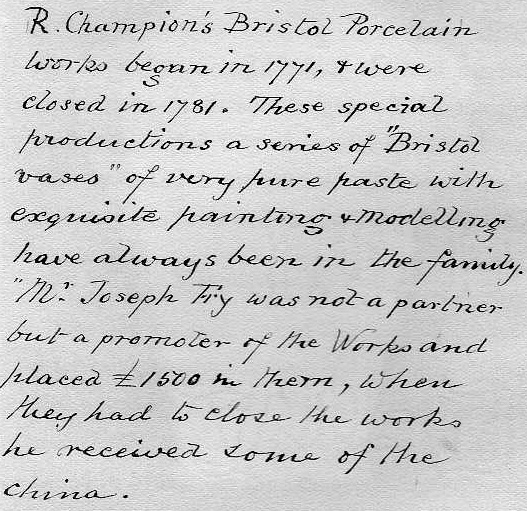 R. Champion's Bristol Porcelain
works began in 1771, & were
closed in 1781. These special
productions a series of "Bristol
vases" of very pure paste with
exquisite painting & modelling
have always been in the family.
"Mr. Joseph Fry was not a partner
but a promoter of the Works and
placed £1500 in them, when
they had to close the works
he received some of the
china.